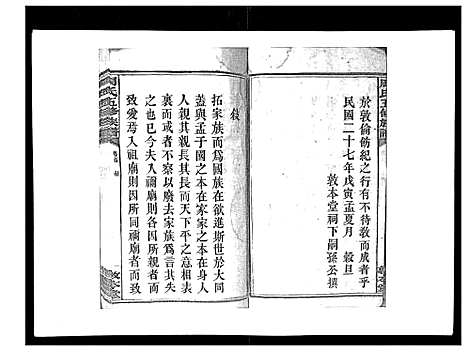 於敦倫紀之行有不待敎而成者乎
民國二十七年戊寅孟夏月 穀旦
敦本堂祠下嗣孫丕撰
敦本堂
氏五修族譜
敘
拓家族而爲國族在欲進斯世於大同
蓋與孟子國之本在家家之本在身人
人親其親長其長而天下平之意相表
裏者也不察以廢去家族爲言其失
之也已今夫入禰廟則各因所親者而
致愛焉入祖廟則因所同禰廟者而致